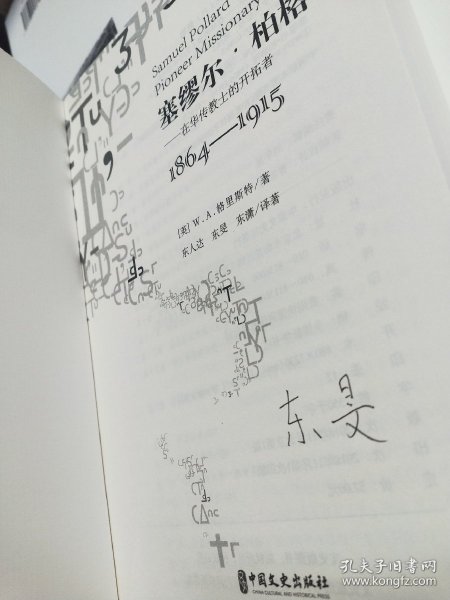 Samuel Pollard
Pioneer Missionary
塞缪尔·柏格
——在华传教士的开拓者
1864—1915
[英] W.A.格里斯特/著
东人达 东旻 东潇/译著
东旻
中国文史出版社
CHINA CULTURAL AND HISTORICAL PRESS
孔夫子旧书网
www.kongfz.com